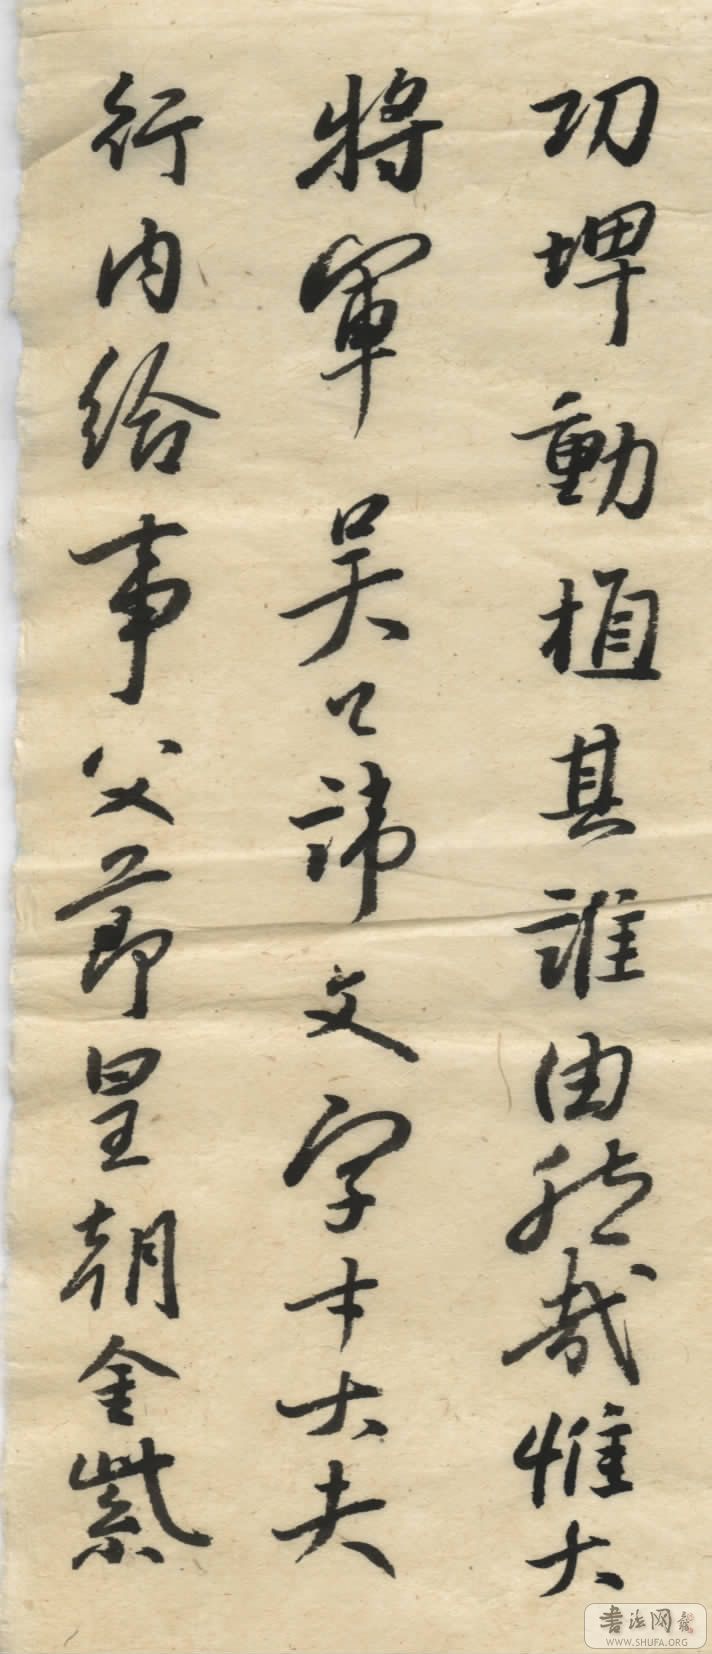 功埤動植其誰由然哉惟大
將軍吳公諱文字才大夫
行內給事父節皇朝金紫
書法网
WWW.SHUFA.ORG